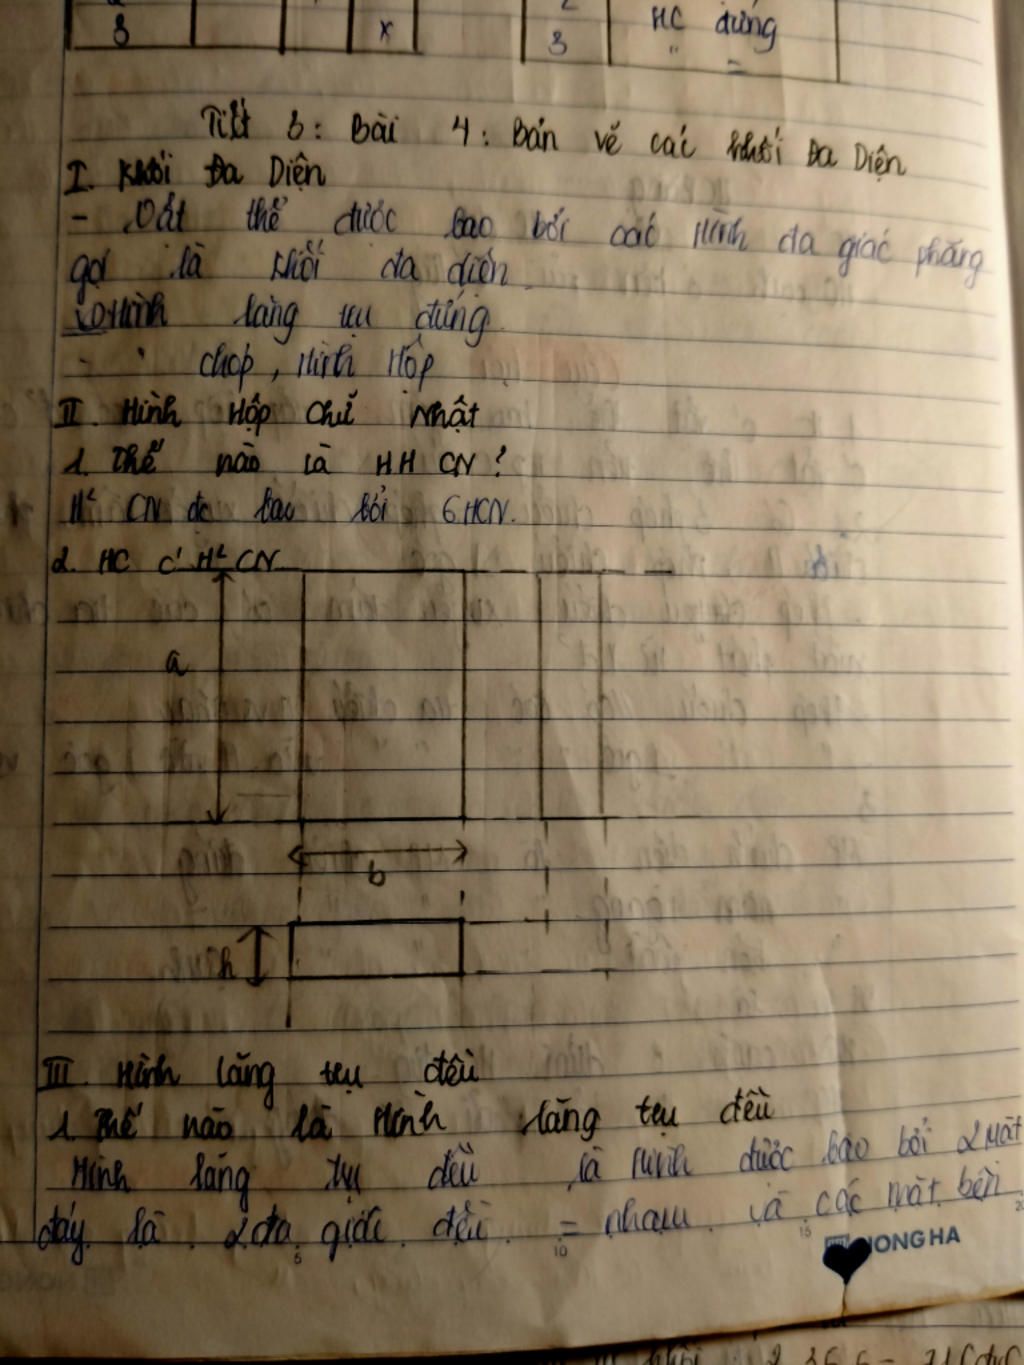 3 x 3 HC đứng
"
Tiết 3: Bài 4: Bản vẽ các khối Đa Diện
I. Khối Đa Diện
- Vật thể được bao bởi các Hình đa giác phẳng
gọi là khối đa diện.
VD Hình lăng trụ đứng
- " chóp, Hình Hộp
II Hình Hộp Chữ Nhật
1. Thế nào là HH CN?
H² CN đc bao bởi 6HCN.
2. HC c' H² CN
a
b
h
III Hình lăng trụ đều
1. Thế nào là Hình lăng trụ đều
Hình lăng trụ đều là Hình được bao bởi 2 Mặt
đáy là 2 đa giác đều = nhau và các mặt bên
5 10 15 20
HONG HA